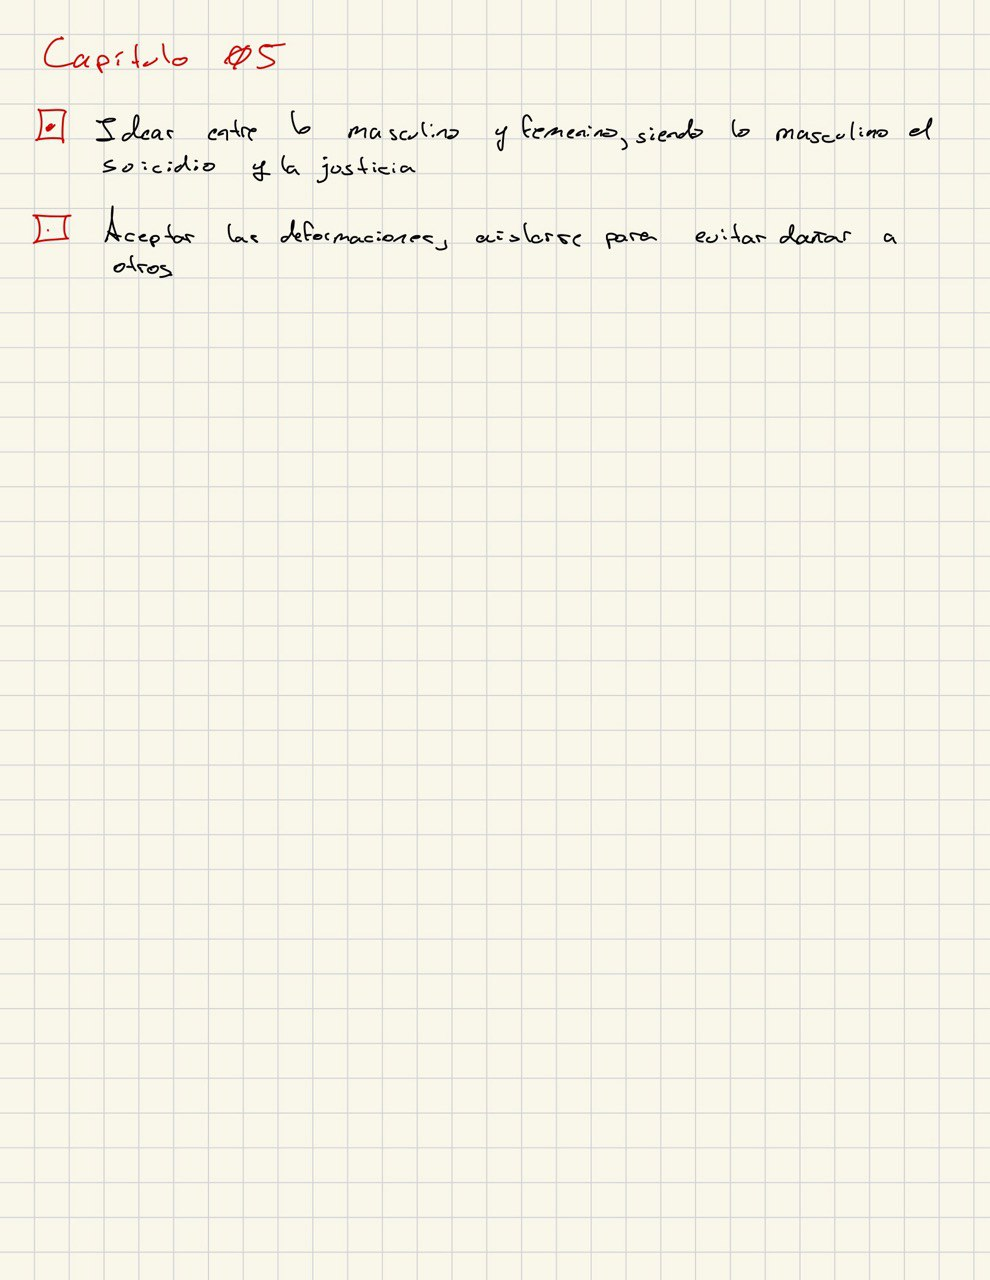 Capítulo 05
Idear entre lo masculino y femenino, siendo lo masculino el
suicidio y la justicia
Aceptar las deformaciones, aislarse para evitar dañar a
otros